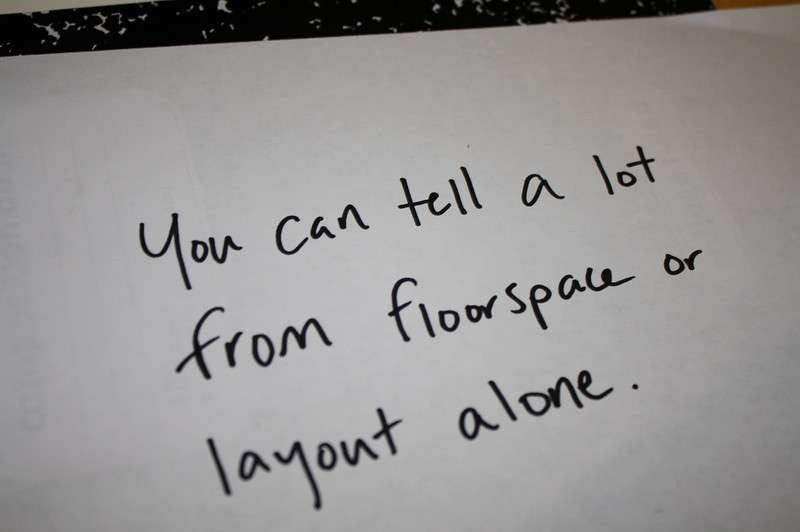 You can tell a lot
from floorspace or
layout alone.